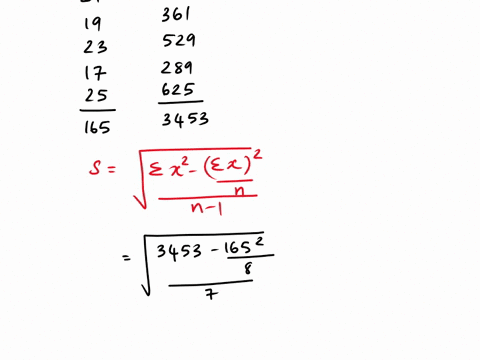 19 361
23 529
17 289
25 625
165 3453
S = √((Σx² - (Σx)²/n)/(n-1))
= √((3453 - 165²/8)/7)